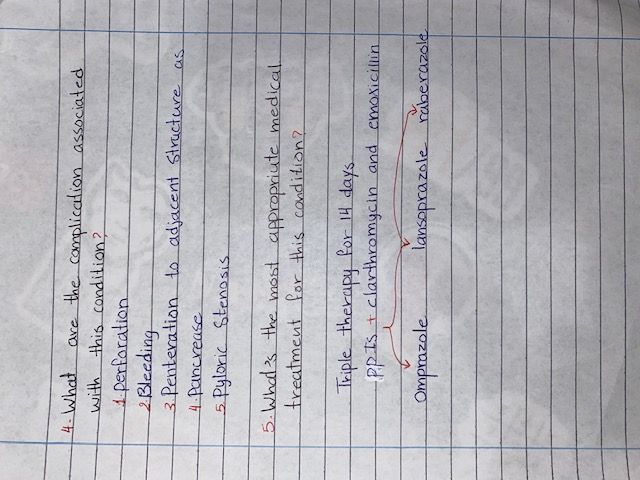 4. What are the complication associated
with this condition?
1. perforation
2. Bleeding
3 Penteration to adjacent structure as
4 Pancrease
5. Pyloric Stenosis
5. What's the most appropriute medical
treatment for this condition?
Triple therapy for 14 days
PPIs + clarthromycin and emoxicillin
Omprazole lansoprazole raberazole